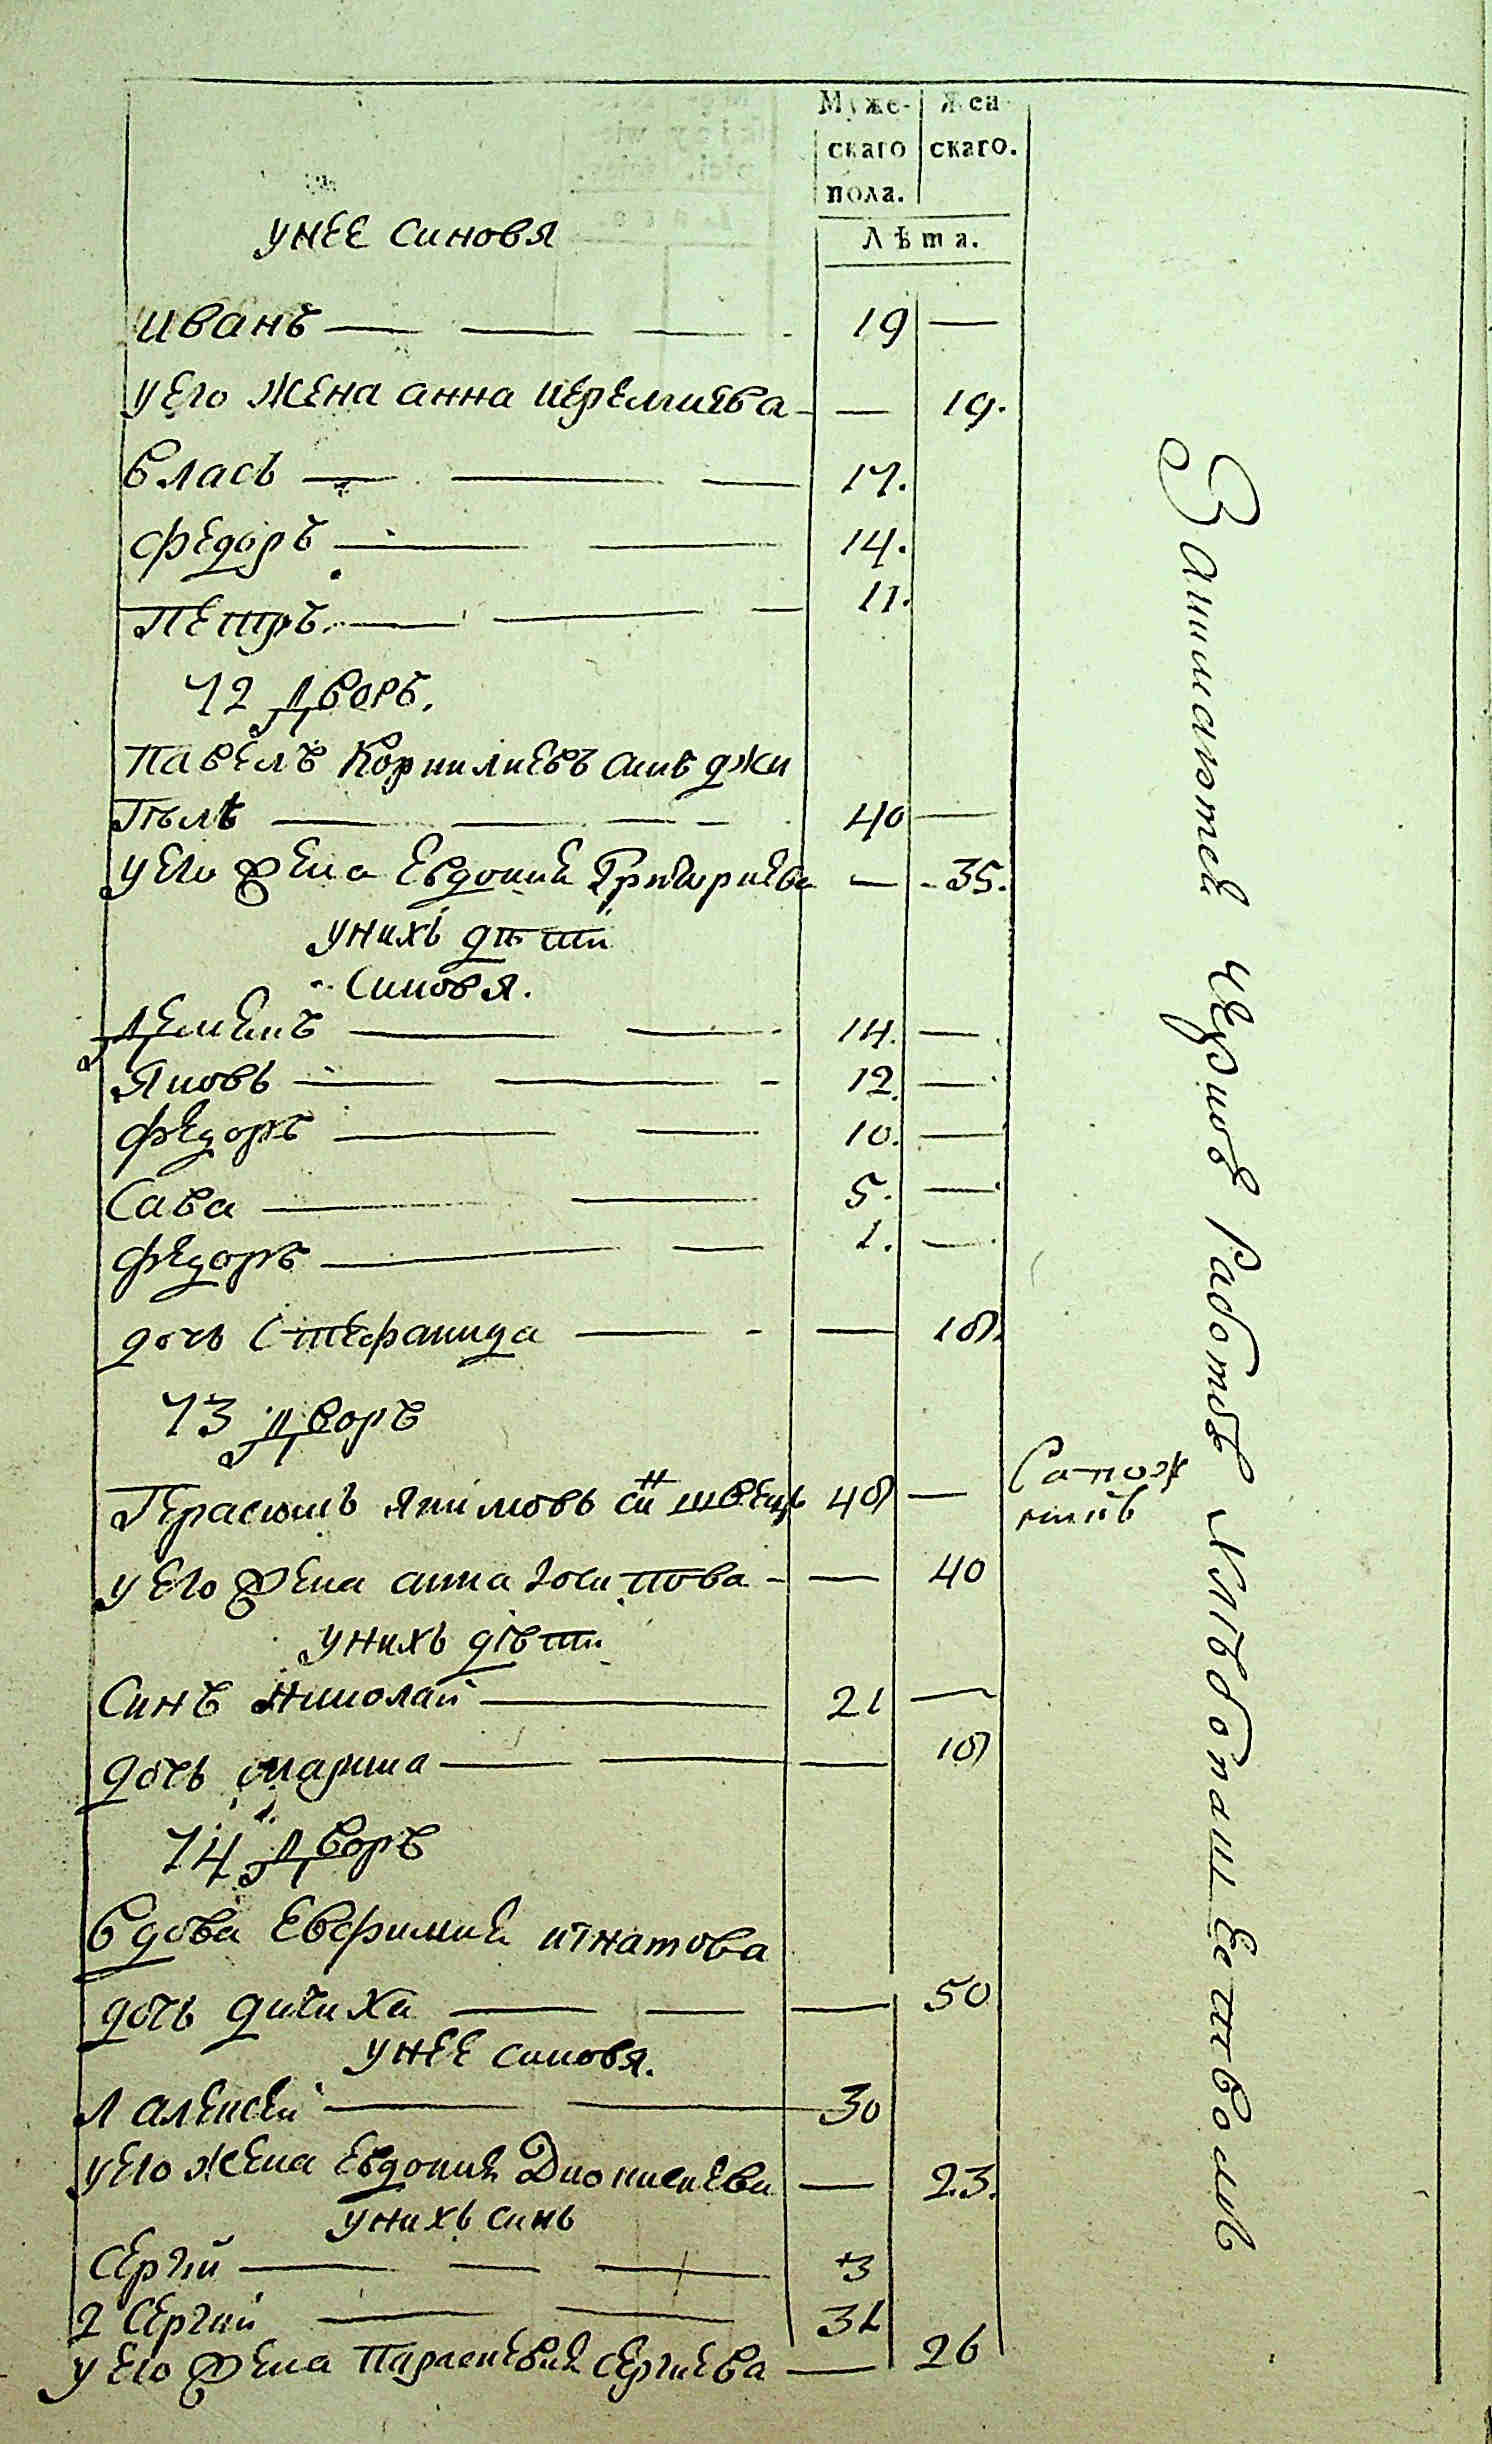 Муже-
скаго
пола.
Женскаго.
Лѣта.
унее синовя
иванъ — — — 19 —
у его жена анна иеремиева — 19.
власъ — — — 17.
федоръ — — 14.
петръ — — — 11.
72 дворъ.
павелъ корнилиевъ синъ джи
пълѣ — — — — 40 —
у его жена евдокия григориева — 35.
унихъ дѣти
синовя.
— — 14. —
Яковъ — — — 12. —
федоръ — — 10. —
Сава — — 5. —
федоръ — — 1. —
дочь Стефанида — — — 18.
73 дворъ
Герасимъ якимовъ синъ швецъ 48 —
Сапож
никъ
у его жена анна иосипова — — 40
унихъ дѣти
Синъ николай — 21 —
дочь марина — — — 18
74 дворъ
вдова евфимия игнатова
дочь дичиха — — — 50
унее синовя.
1 алексей — — 30
у его жена евдокия Дионисиева — 23.
унихъ синъ
Сергий — — — 3
2 Сергий — — 31
у его жена Параскевия сергиева — 26
Занимаются черною работою и хлѣбопашевством